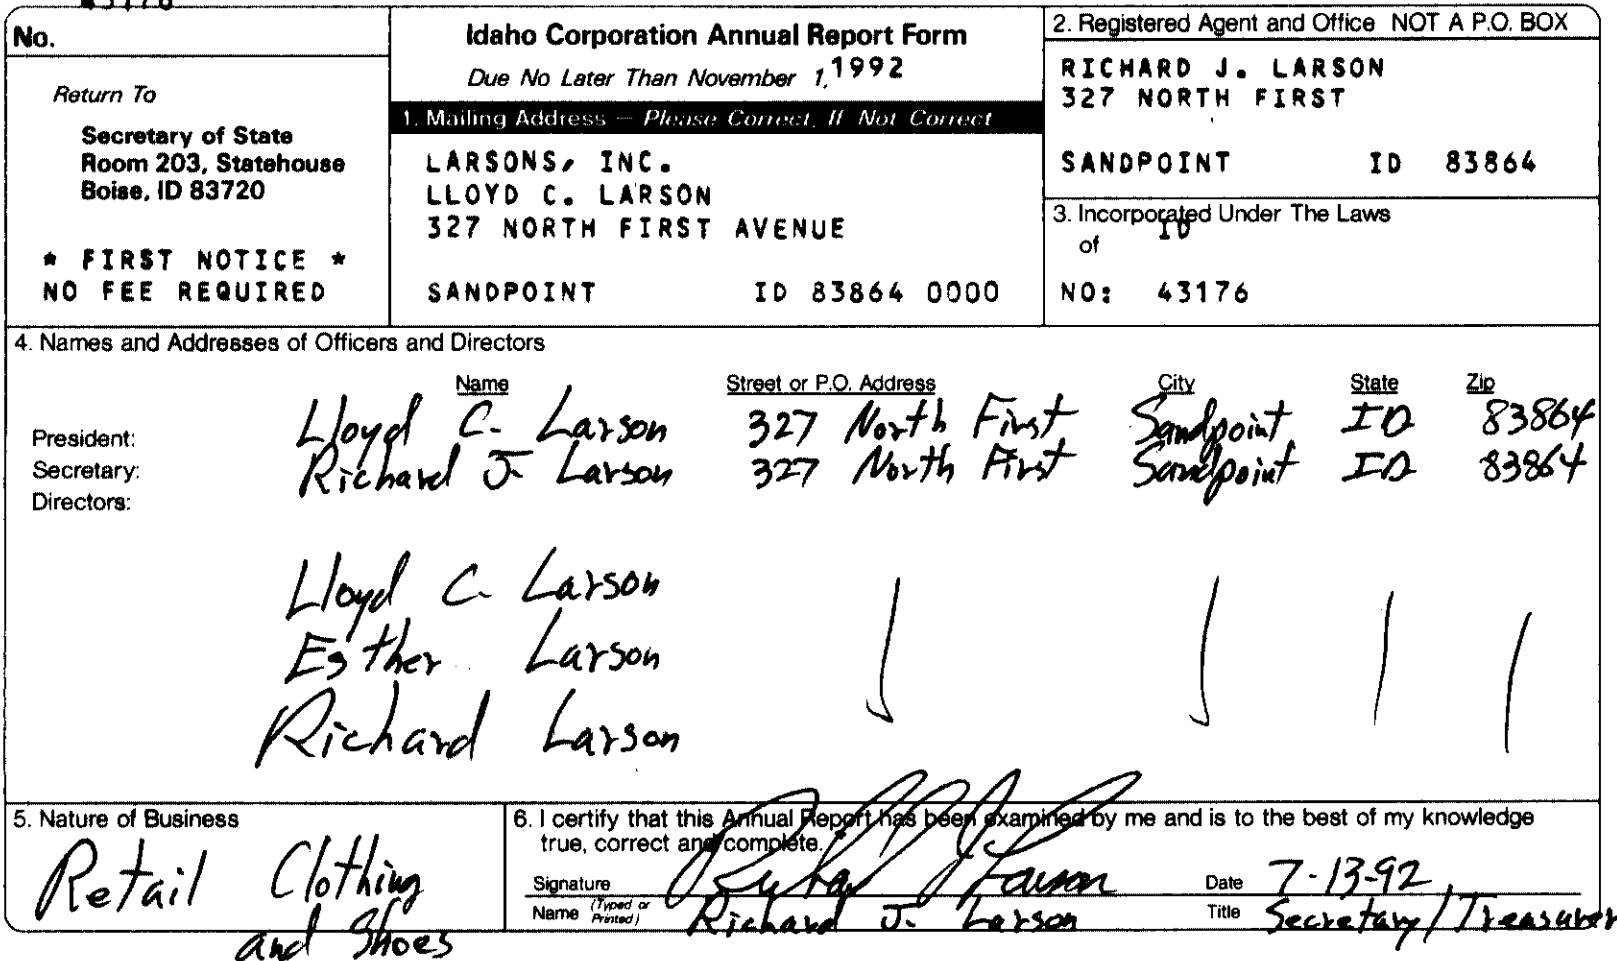 43176
No.
Return To
Secretary of State
Room 203, Statehouse
Boise, ID 83720
* FIRST NOTICE *
NO FEE REQUIRED
Idaho Corporation Annual Report Form
Due No Later Than November 1, 1992
1. Mailing Address — Please Correct, If Not Correct
LARSONS, INC.
LLOYD C. LARSON
327 NORTH FIRST AVENUE
SANDPOINT ID 83864 0000
2. Registered Agent and Office NOT A P.O. BOX
RICHARD J. LARSON
327 NORTH FIRST
SANDPOINT ID 83864
3. Incorporated Under The Laws
of ID
NO: 43176
4. Names and Addresses of Officers and Directors
Name Street or P.O. Address City State Zip
President: Lloyd C. Larson 327 North First Sandpoint ID 83864
Secretary: Richard J. Larson 327 North First Sandpoint ID 83864
Directors:
Lloyd C. Larson
Esther Larson
Richard Larson
5. Nature of Business
Retail Clothing
and Shoes
6. I certify that this Annual Report has been examined by me and is to the best of my knowledge
true, correct and complete.
Signature Richard J Larson Date 7-13-92
Name (Typed or Printed) Richard J. Larson Title Secretary/Treasurer